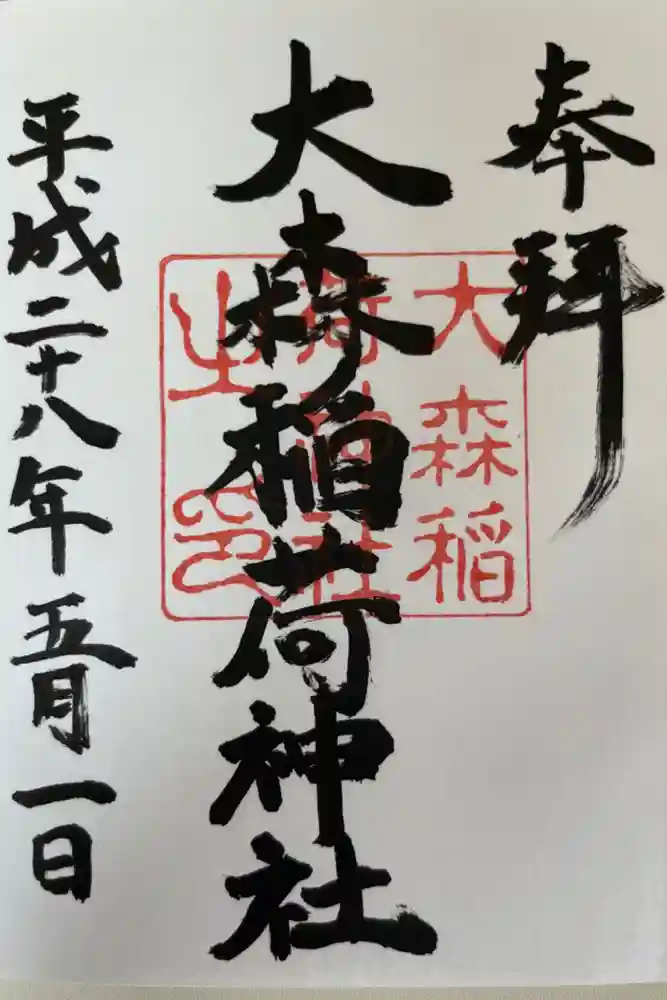 奉拝
大森稲荷神社
大森稲
荷神社
之印
平成二十八年五月一日